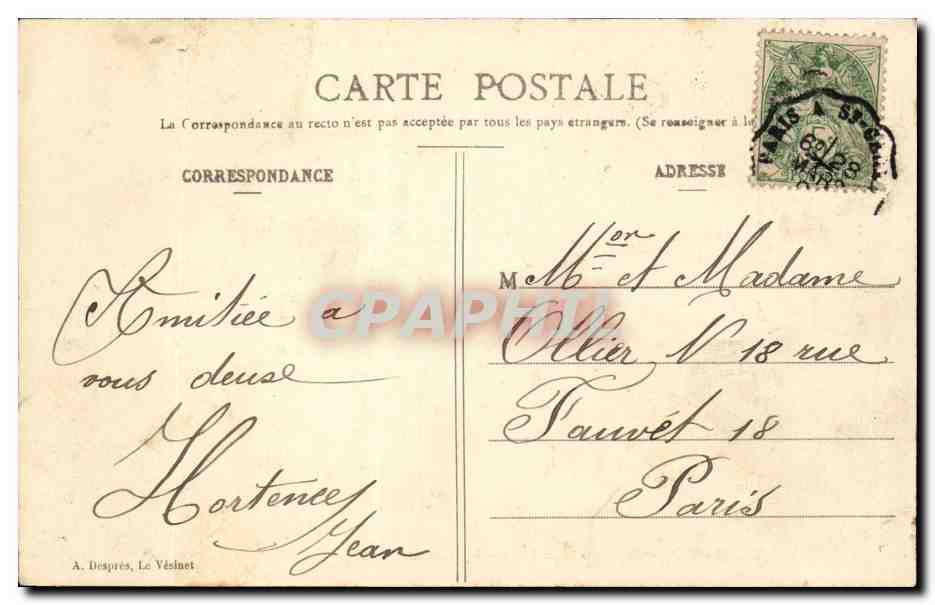 CARTE POSTALE
La Correspondance au recto n'est pas acceptée par tous les pays etrangers. (Se renseigner à la
CORRESPONDANCE
ADRESSE
PARIS A ST-G
8 28
MARS
Amitiée a
vous deuse
Hortence
Jean
M Mor et Madame
Ollier N 18 rue
Fauvét 18
Paris
A. Desprès, Le Vésinet
CPAPHIL